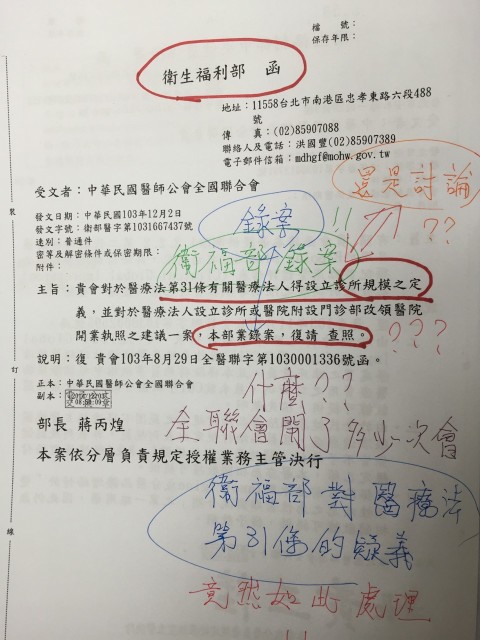 檔　　號：
保存年限：
衛生福利部　函
地址：11558台北市南港區忠孝東路六段488
號
傳　　真：(02)85907088
聯絡人及電話：洪國豐(02)85907389
電子郵件信箱：mdhgf@mohw.gov.tw
還是討論
??
受文者：中華民國醫師公會全國聯合會
發文日期：中華民國103年12月2日
發文字號：衛部醫字第1031667437號
速別：普通件
密等及解密條件或保密期限：
附件：
錄案
!!
衛福部錄案
主旨：貴會對於醫療法第31條有關醫療法人得設立診所規模之定
義，並對於醫療法人設立診所或醫院附設門診部改領醫院
開業執照之建議一案，本部業錄案，復請 查照。
???
說明：復 貴會103年8月29日全醫聯字第1030001336號函。
正本：中華民國醫師公會全國聯合會
副本：
什麼??
部長 蔣丙煌
全聯會開了多少次會
本案依分層負責規定授權業務主管決行
衛福部對醫療法
第31條的疑義
竟然如此處理
裝
訂
線